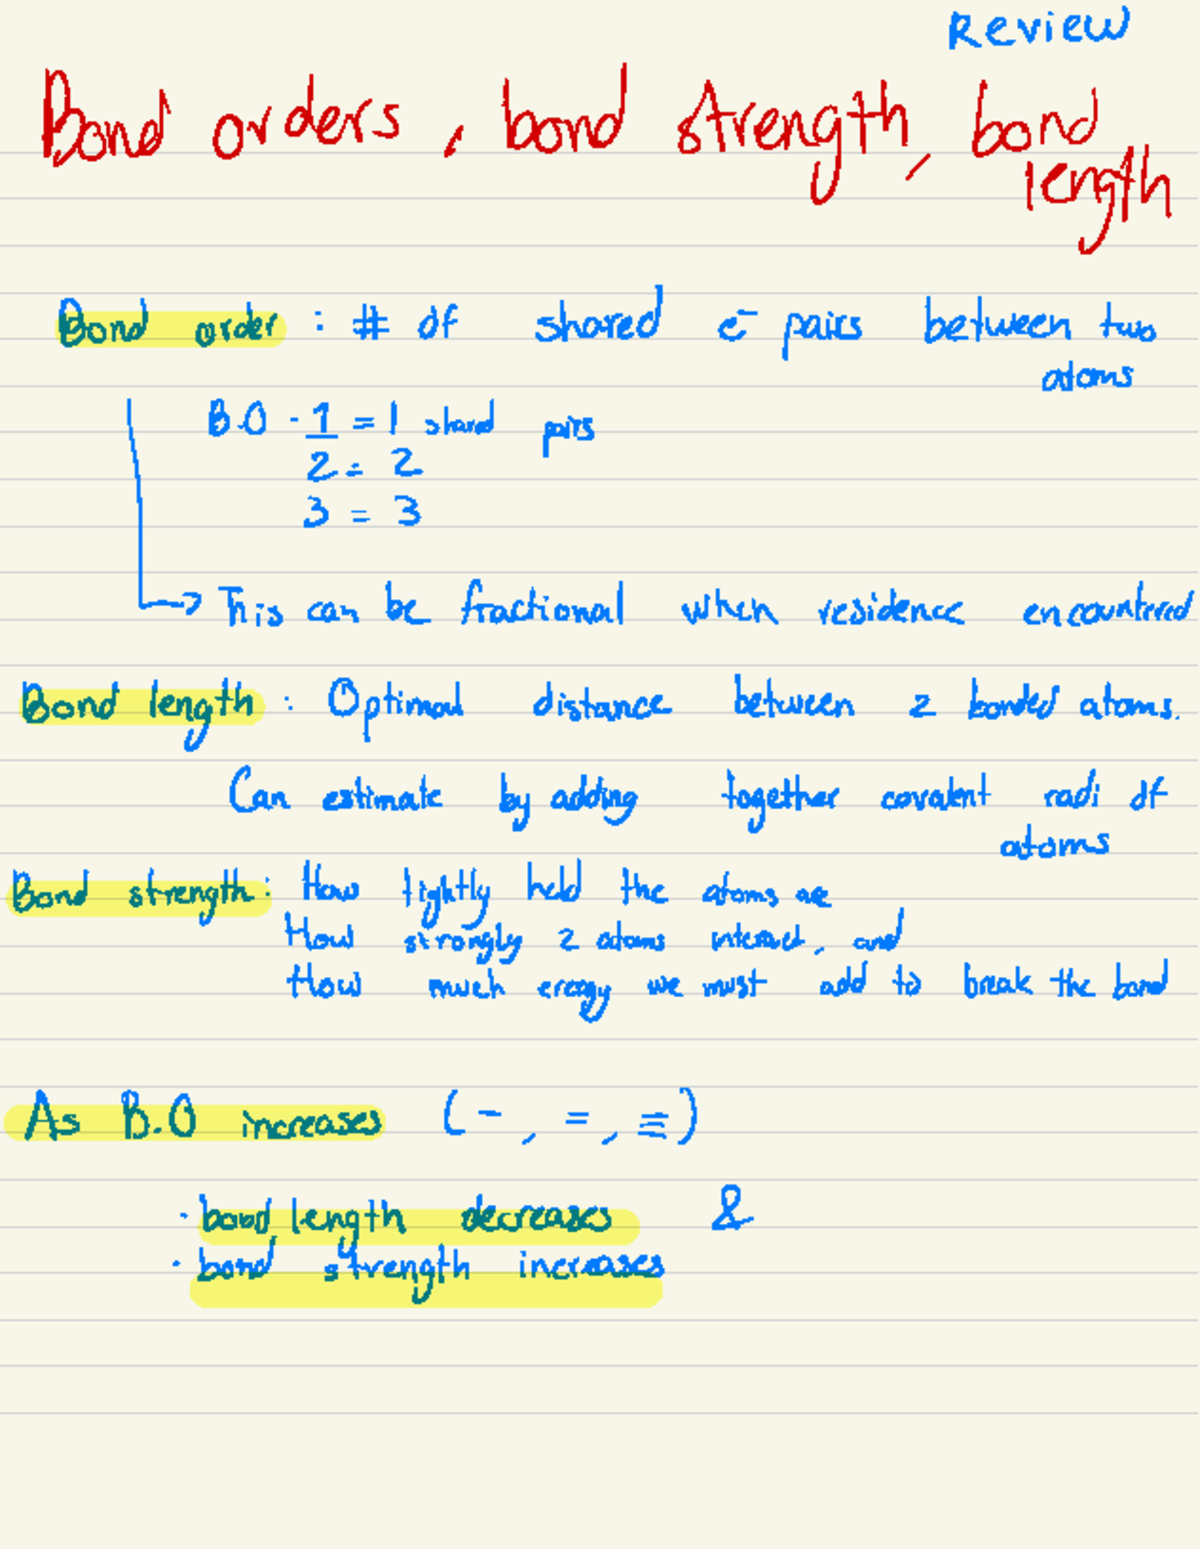 Review
Bond orders, bond strength, bond
length
Bond order : # of shared e⁻ pairs between two
atoms
B.O - 1 = 1 shared pairs
2 = 2
3 = 3
→ This can be fractional when residence encountered
Bond length : Optimal distance between 2 bonded atoms.
Can estimate by adding together covalent radi of
atoms
Bond strength : How tightly held the atoms are
How strongly 2 atoms interact, and
How much energy we must add to break the bond
As B.O increases (-, =, ≡)
· bond length decreases &
· bond strength increases